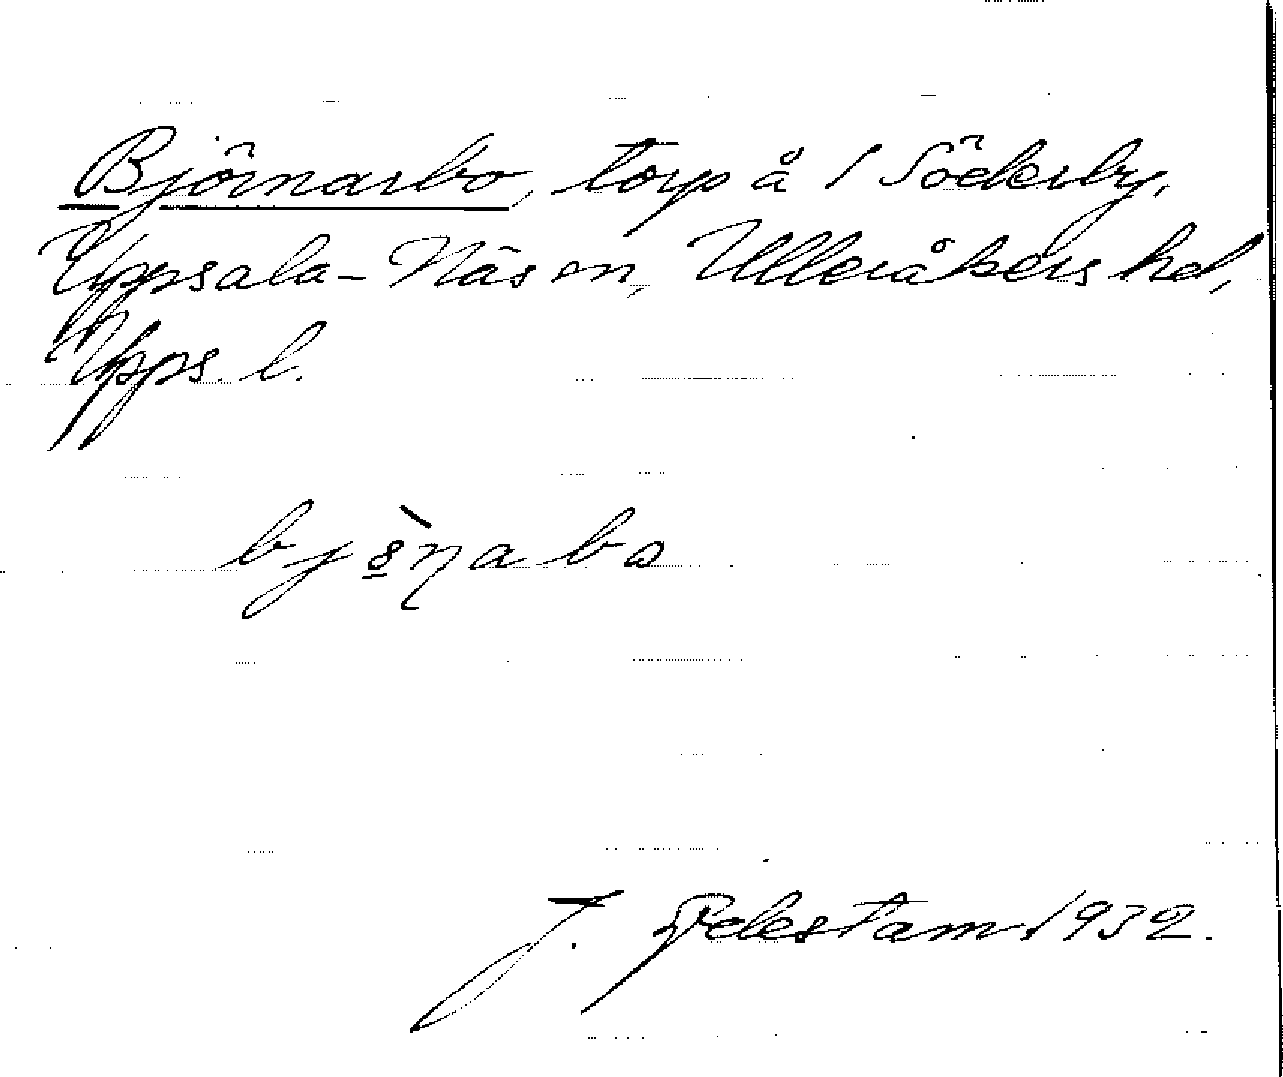 Björnarbo, torp å 1 Söderby,
Uppsala-Näs sn, Ulleråkers hd,
Upps. l.
bjö̀ṇabo
J. Pelestam 1932.